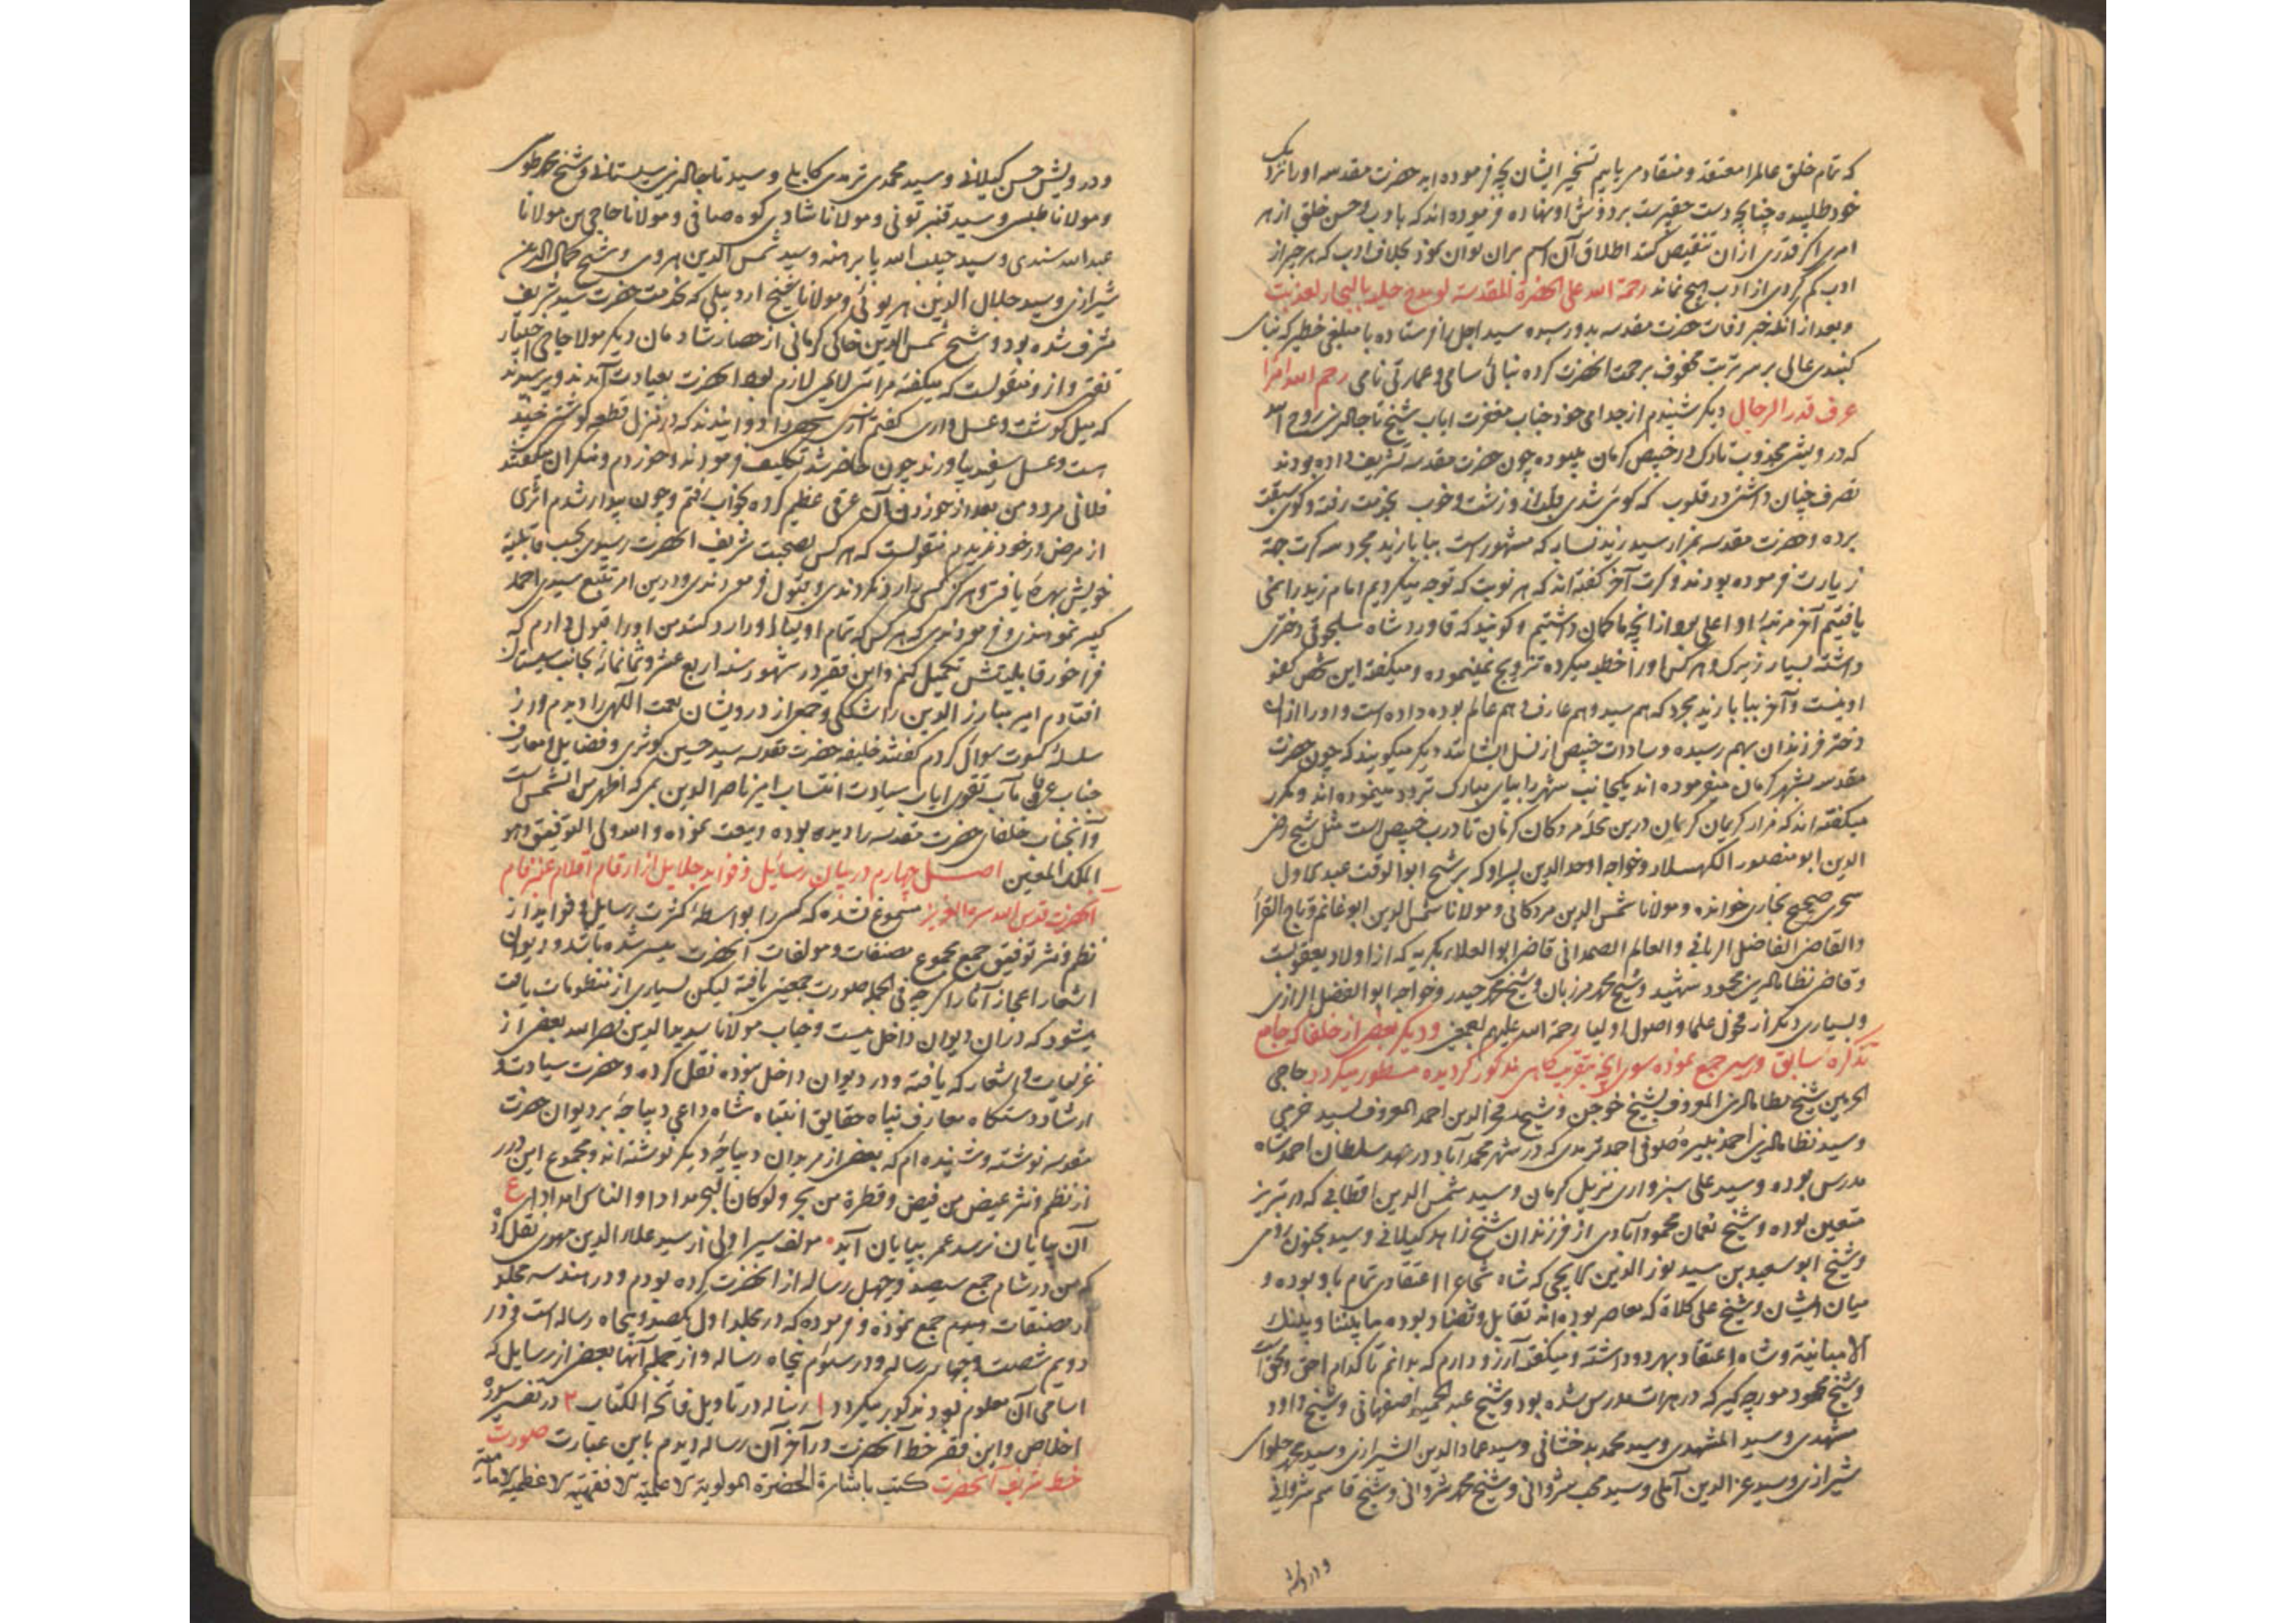 که تمام خلق عالم را معتقد و منقاد می یابیم تسخیر ایشان بچه فرموده اید حضرت مقدسه او را نزدیک
خود طلبیده چنانچه دست بر دوش او نهاده فرموده اند که بادب و حسن خلق از هر
امری اگر قدری از آن تنقیص کنند اطلاق آن اسم بران توان نمود بخلاف ادب که هر چیز از
ادب کم کردی از ادب هیچ نماند رحمة الله علی الحضرة المقدسة
و بعد از آنکه خبر وفات حضرت مقدسه بدو رسیده سید اجل را فرستاده با مبلغی خطیر که بنای
کنبدی عالی بر سر تربت محفوف برحمت آنحضرت کرده بنائی سامی و عمارتی نامی رحم الله امرا
عرف قدر الرجال دیگر شنیدم از جد امی خود جناب مغفرت ایاب شیخ تاج الدین
که درویشی مجذوب تارک در خبیص کرمان میبوده چون حضرت مقدسه تشریف داده بودند
تصرف چنان داشتی در قلوب که کوئی شدی زشت و خوب بخدمت رفته و کوی سبقت
برده و حضرت مقدسه بمزار سید زید نسابه که مشهور است ببابا زید مجرد سه کرت جهة
زیارت فرموده بودند و کرت آخر گفته اند که هر نوبت که توجه میکردیم امام زید را نمی
یافتیم آخر مرتبه او اعلی بود از آنچه ما گمان داشتیم و گویند که قاورد شاه سلجوقی دختری
داشته بسیار زیرک و هر کس او را خطبه میکرده تزویج نمینموده و میکفته این شخص کفو
او نیست و آخر ببابا زید مجرد که هم سید و هم عارف و هم عالم بوده داده است و او را ازان
دختر فرزندان بهم رسیده و سادات خبیص از نسل ایشانند دیگر میگویند که چون حضرت
مقدسه بشهر کرمان میفرموده اند یکجانب شهر را بپای مبارک تردد مینموده اند و مکرر
میکفته اند که مزار کریمان کرمان درین محله مردکان کرمان تا درب خبیص است مثل شیخ رضی
الدین ابو منصور و خواجه اوحد الدین پسر او که بر شیخ ابو الوقت عبد الاول
سجزی صحیح بخاری خوانده و مولانا شمس الدین مردکانی و مولانا شمس الدین ابو غانم و تاج القرأ
والقاضی الفاضل الربانی والعالم الصمدانی قاضی ابو العلاء بکریه که از اولاد یعقوبست
و قاضی نظام الدین محمود شهید و شیخ محمد مرزبان و شیخ محمد حیدر و خواجه ابو الفضل الرازی
و بسیاری دیگر از فحول علما و اصول اولیا رحمة الله علیهم اجمعین و دیگر بعضی از خلفا که جامع
تذکره سابق جمع نموده سوی آنچه بتقریب گاهی مذکور گردیده مسطور میگردد حاجی
الحرمین شیخ نظام الدین المعروف بشیخ خوجن و شیخ فخر الدین احمد المعروف بسید خرمی
و سید نظام الدین احمد نبیره صوفی احمد ترمدی که در شهر محمدآباد در عهد سلطان احمد شاه
مدرس بوده و سید علی سبزواری نزیل کرمان و سید شمس الدین اقطابی که در تبریز
متعین بوده و شیخ نعمان محمودآبادی از فرزندان شیخ زاهد گیلانی و سید مجنون رومی
و شیخ ابو سعید بن سید نور الدین که شاه شجاع را اعتقادی تمام باو بوده و
میان ایشان و شیخ علی کلاه که معاصر بوده اند تقابل و تضاد بوده ما بیننا و بینک
الا مباینة و شاه اعتقاد بهر دو داشته و میکفته آرزو دارم که بدانم تا کدام احق و محق است
و شیخ محمود مورچه گیر که در هرات مدرس شده بود و شیخ عبد الحمید اصفهانی و شیخ داود
مشهدی و سید المشهدی و سید محمد بدخشانی و سید عماد الدین الشیرازی و سید محمد حلوای
شیرازی و سید عز الدین آملی و سید محب شروانی و شیخ محمد شروانی و شیخ قاسم شروانی
و درویش
و درویش حسن گیلانی و سید محمدی ترمدی کابلی و سید تاج الدین سیستانی و شیخ محمد طوسی
و مولانا طبسی و سید قنبر تونی و مولانا شادی کوه صافی و مولانا حاجی بن مولانا
عبد الله سندی و سید حبیب الله پا برهنه و سید شمس الدین هروی و شیخ کمال الدین
شیرازی و سید جلال الدین و مولانا شیخ اردبیلی که بخدمت حضرت سید شریف
مشرف شده بود و شیخ شمس الدین خاکی کرمانی از حصار شادمان دیگر مولانا حاجی اختیار
و ازو منقولست که میکفته مرا تبی لازم بود آنحضرت بعیادت آمدند و پرسیدند
که میل گوشت و عسل داری گفتم آری که در منزل قطعه گوشتی پخته
است و عسل سفید بیاورند چون حاضر شد تکلیف فرمودند و خوردم و منکران میگفتند
فلانی مرد و من بعد از خوردن آن عرقی عظیم کرده بخواب رفتم و چون بیدار شدم اثری
از مرض در خود ندیدم منقولست که هر کس بصحبت شریف آنحضرت رسیدی بحسب قابلیة
خویش بهره یافتی و هرگز کس را رد نکردندی و قبول فرمودندی و درین امر تتبع سیدی احمد
کبیر نمودندی و فرمودندی که هر کس که تمام اولیا او را رد کنند من او را قبول دارم که
فراخور قابلیتش تکمیل کنم و این فقیر در شهور سنه اربع عشر و ثمانمائه بجانب سیستان
افتادم امیر مبارز الدین را شکلی و جمعی از درویشان نعمت اللهی را دیدم و از
سلسله کسوت سوال کردم گفتند خلیفه حضرت مقدسه سید حسین کوثری و فضایل و معارف
جناب عرفان مآب تقوی ایاب سیادت انتساب امیر ناصر الدین بمی که اظهر من الشمس است
و آنجناب خلفای حضرت مقدسه را دیده بوده و بیعت نموده والله ولی التوفیق وهو
الملک المعین اصل چهارم در بیان رسایل و فواید جلایل از ارقام اقلام عنبر فام
آنحضرت قدس الله سره العزیز مسموع نشده که کسی را بواسطه کثرت رسایل و فواید از
نظم و نثر توفیق جمع مجموع مصنفات و مولفات آنحضرت میسر شده باشد و دیوان
اشعار اعجاز آثار اگرچه فی الجمله صورت جمعیتی یافته لیکن بسیاری از منظومات یافت
میشود که دران دیوان داخل نیست و جناب مولانا سدید الدین نصر الله بعضی از
غزلیات و اشعار که یافته و در دیوان داخل نبوده نقل کرده و حضرت سیادت و
ارشاد دستگاه معارف پناه حقایق انتباه شاه داعی دیباچه بر دیوان حضرت
مقدسه نوشته و شنیده ام که بعضی از مریدان دیباچه دیگر نوشته اند و مجموع این درر
از نظم و نثر غیض من فیض و قطرة من بحر ولو کان البحر مدادا والناس امدادا ع
آن بپایان نرسد عمر بپایان آید مولف سیر اولی از سید علاء الدین مهدی نقل کرده
که من در شام جمع سیصد و چهل رساله از آنحضرت کرده بودم و در هند سه مجلد
از مصنفات جمع نموده و فرموده که در مجلد اول یکصد و پنجاه رساله است و در
دویم شصت و چهار رساله و در سوم پنجاه رساله و از جمله آنها بعضی از رسایل که
اسامی آن معلوم بود مذکور میگردد ۱ رساله در تاویل فاتحة الکتاب ۲ در تفسیر سوره
اخلاص و این فقیر خط آنحضرت در آخر آن رساله دیدم باین عبارت صورت
خط شریف آنحضرت کتب باشارة الحضرة المولویة الاعلمیة الافقهیة الاعظمیة